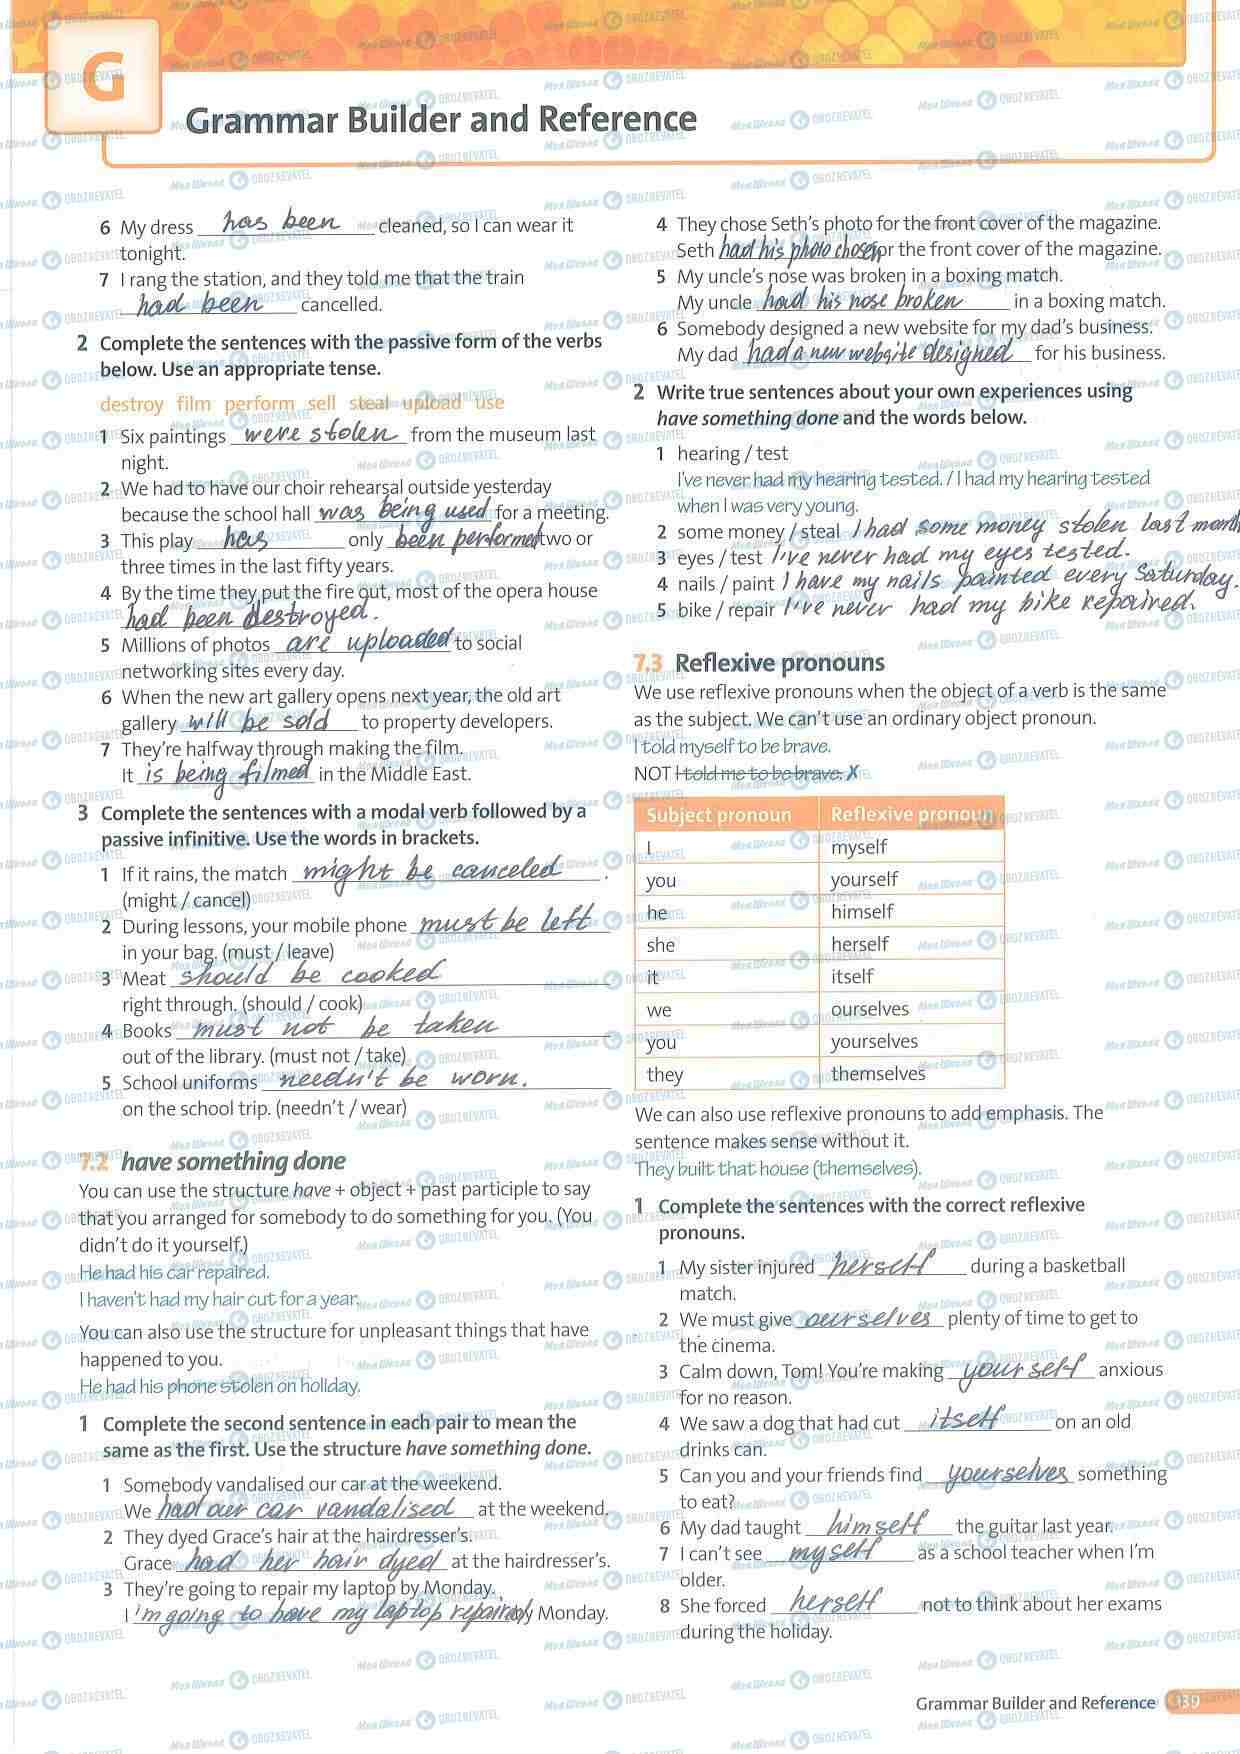 G
Grammar Builder and Reference
6 My dress has been cleaned, so I can wear it
tonight.
7 I rang the station, and they told me that the train
had been cancelled.
2 Complete the sentences with the passive form of the verbs
below. Use an appropriate tense.
destroy film perform sell steal upload use
1 Six paintings were stolen from the museum last
night.
2 We had to have our choir rehearsal outside yesterday
because the school hall was being used for a meeting.
3 This play has only been performed two or
three times in the last fifty years.
4 By the time they put the fire out, most of the opera house
had been destroyed.
5 Millions of photos are uploaded to social
networking sites every day.
6 When the new art gallery opens next year, the old art
gallery will be sold to property developers.
7 They're halfway through making the film.
It is being filmed in the Middle East.
3 Complete the sentences with a modal verb followed by a
passive infinitive. Use the words in brackets.
1 If it rains, the match might be canceled.
(might / cancel)
2 During lessons, your mobile phone must be left
in your bag. (must / leave)
3 Meat should be cooked
right through. (should / cook)
4 Books must not be taken
out of the library. (must not / take)
5 School uniforms needn't be worn.
on the school trip. (needn't / wear)
7.2 have something done
You can use the structure have + object + past participle to say
that you arranged for somebody to do something for you. (You
didn't do it yourself.)
He had his car repaired.
I haven't had my hair cut for a year.
You can also use the structure for unpleasant things that have
happened to you.
He had his phone stolen on holiday.
1 Complete the second sentence in each pair to mean the
same as the first. Use the structure have something done.
1 Somebody vandalised our car at the weekend.
We had our car vandalised at the weekend.
2 They dyed Grace's hair at the hairdresser's.
Grace had her hair dyed at the hairdresser's.
3 They're going to repair my laptop by Monday.
I 'm going to have my laptop repaired by Monday.
4 They chose Seth's photo for the front cover of the magazine.
Seth had his photo chosen for the front cover of the magazine.
5 My uncle's nose was broken in a boxing match.
My uncle had his nose broken in a boxing match.
6 Somebody designed a new website for my dad's business.
My dad had a new website designed for his business.
2 Write true sentences about your own experiences using
have something done and the words below.
1 hearing / test
I've never had my hearing tested. / I had my hearing tested
when I was very young.
2 some money / steal I had some money stolen last month
3 eyes / test I've never had my eyes tested.
4 nails / paint I have my nails painted every Saturday.
5 bike / repair I've never had my bike repaired.
7.3 Reflexive pronouns
We use reflexive pronouns when the object of a verb is the same
as the subject. We can't use an ordinary object pronoun.
I told myself to be brave.
NOT I told me to be brave. ✗
Subject pronoun Reflexive pronoun
I myself
you yourself
he himself
she herself
it itself
we ourselves
you yourselves
they themselves
We can also use reflexive pronouns to add emphasis. The
sentence makes sense without it.
They built that house (themselves).
1 Complete the sentences with the correct reflexive
pronouns.
1 My sister injured herself during a basketball
match.
2 We must give ourselves plenty of time to get to
the cinema.
3 Calm down, Tom! You're making yourself anxious
for no reason.
4 We saw a dog that had cut itself on an old
drinks can.
5 Can you and your friends find yourselves something
to eat?
6 My dad taught himself the guitar last year.
7 I can't see myself as a school teacher when I'm
older.
8 She forced herself not to think about her exams
during the holiday.
Grammar Builder and Reference 139
Моя Школа OBOZREVATEL